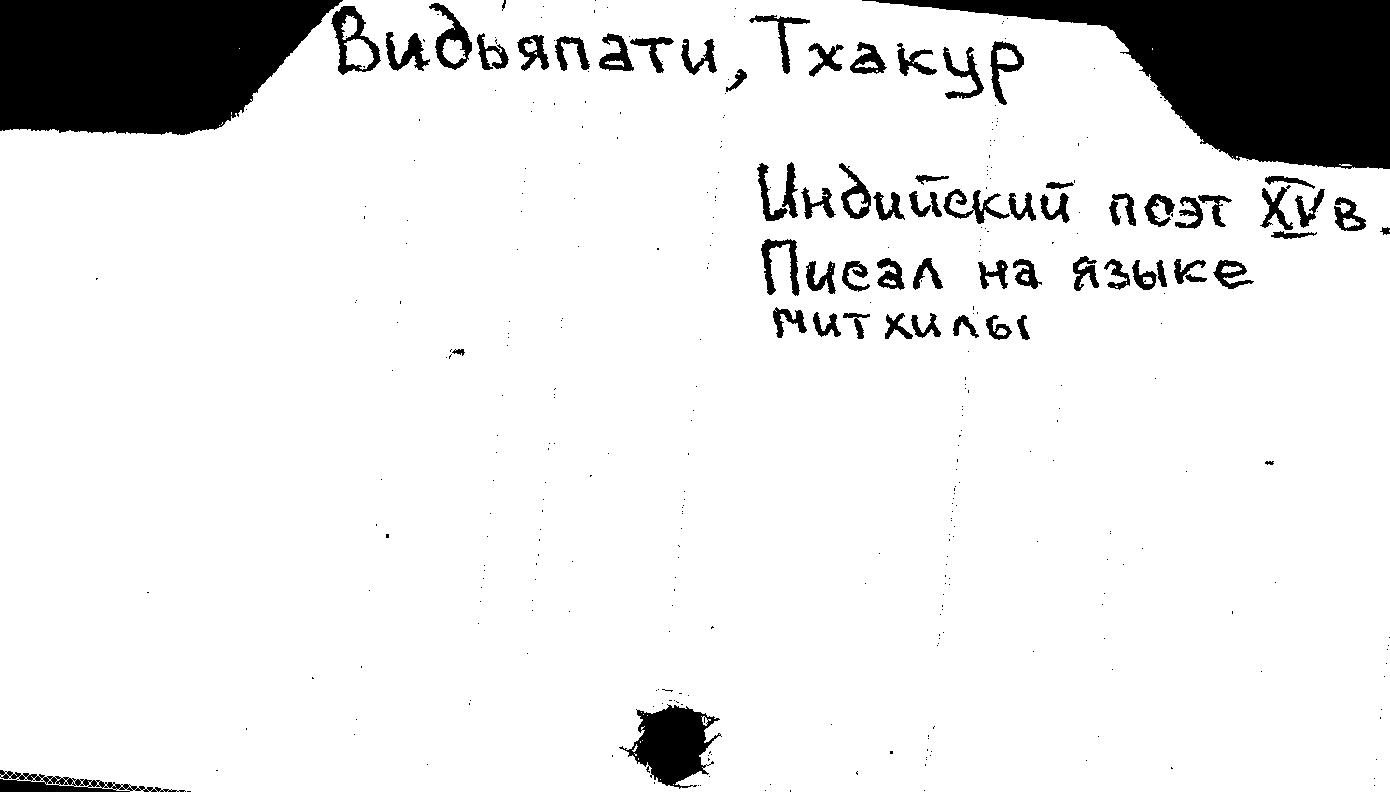 Видьяпати, Тхакур
Индийский поэт XV в.
Писал на языке
митхилы